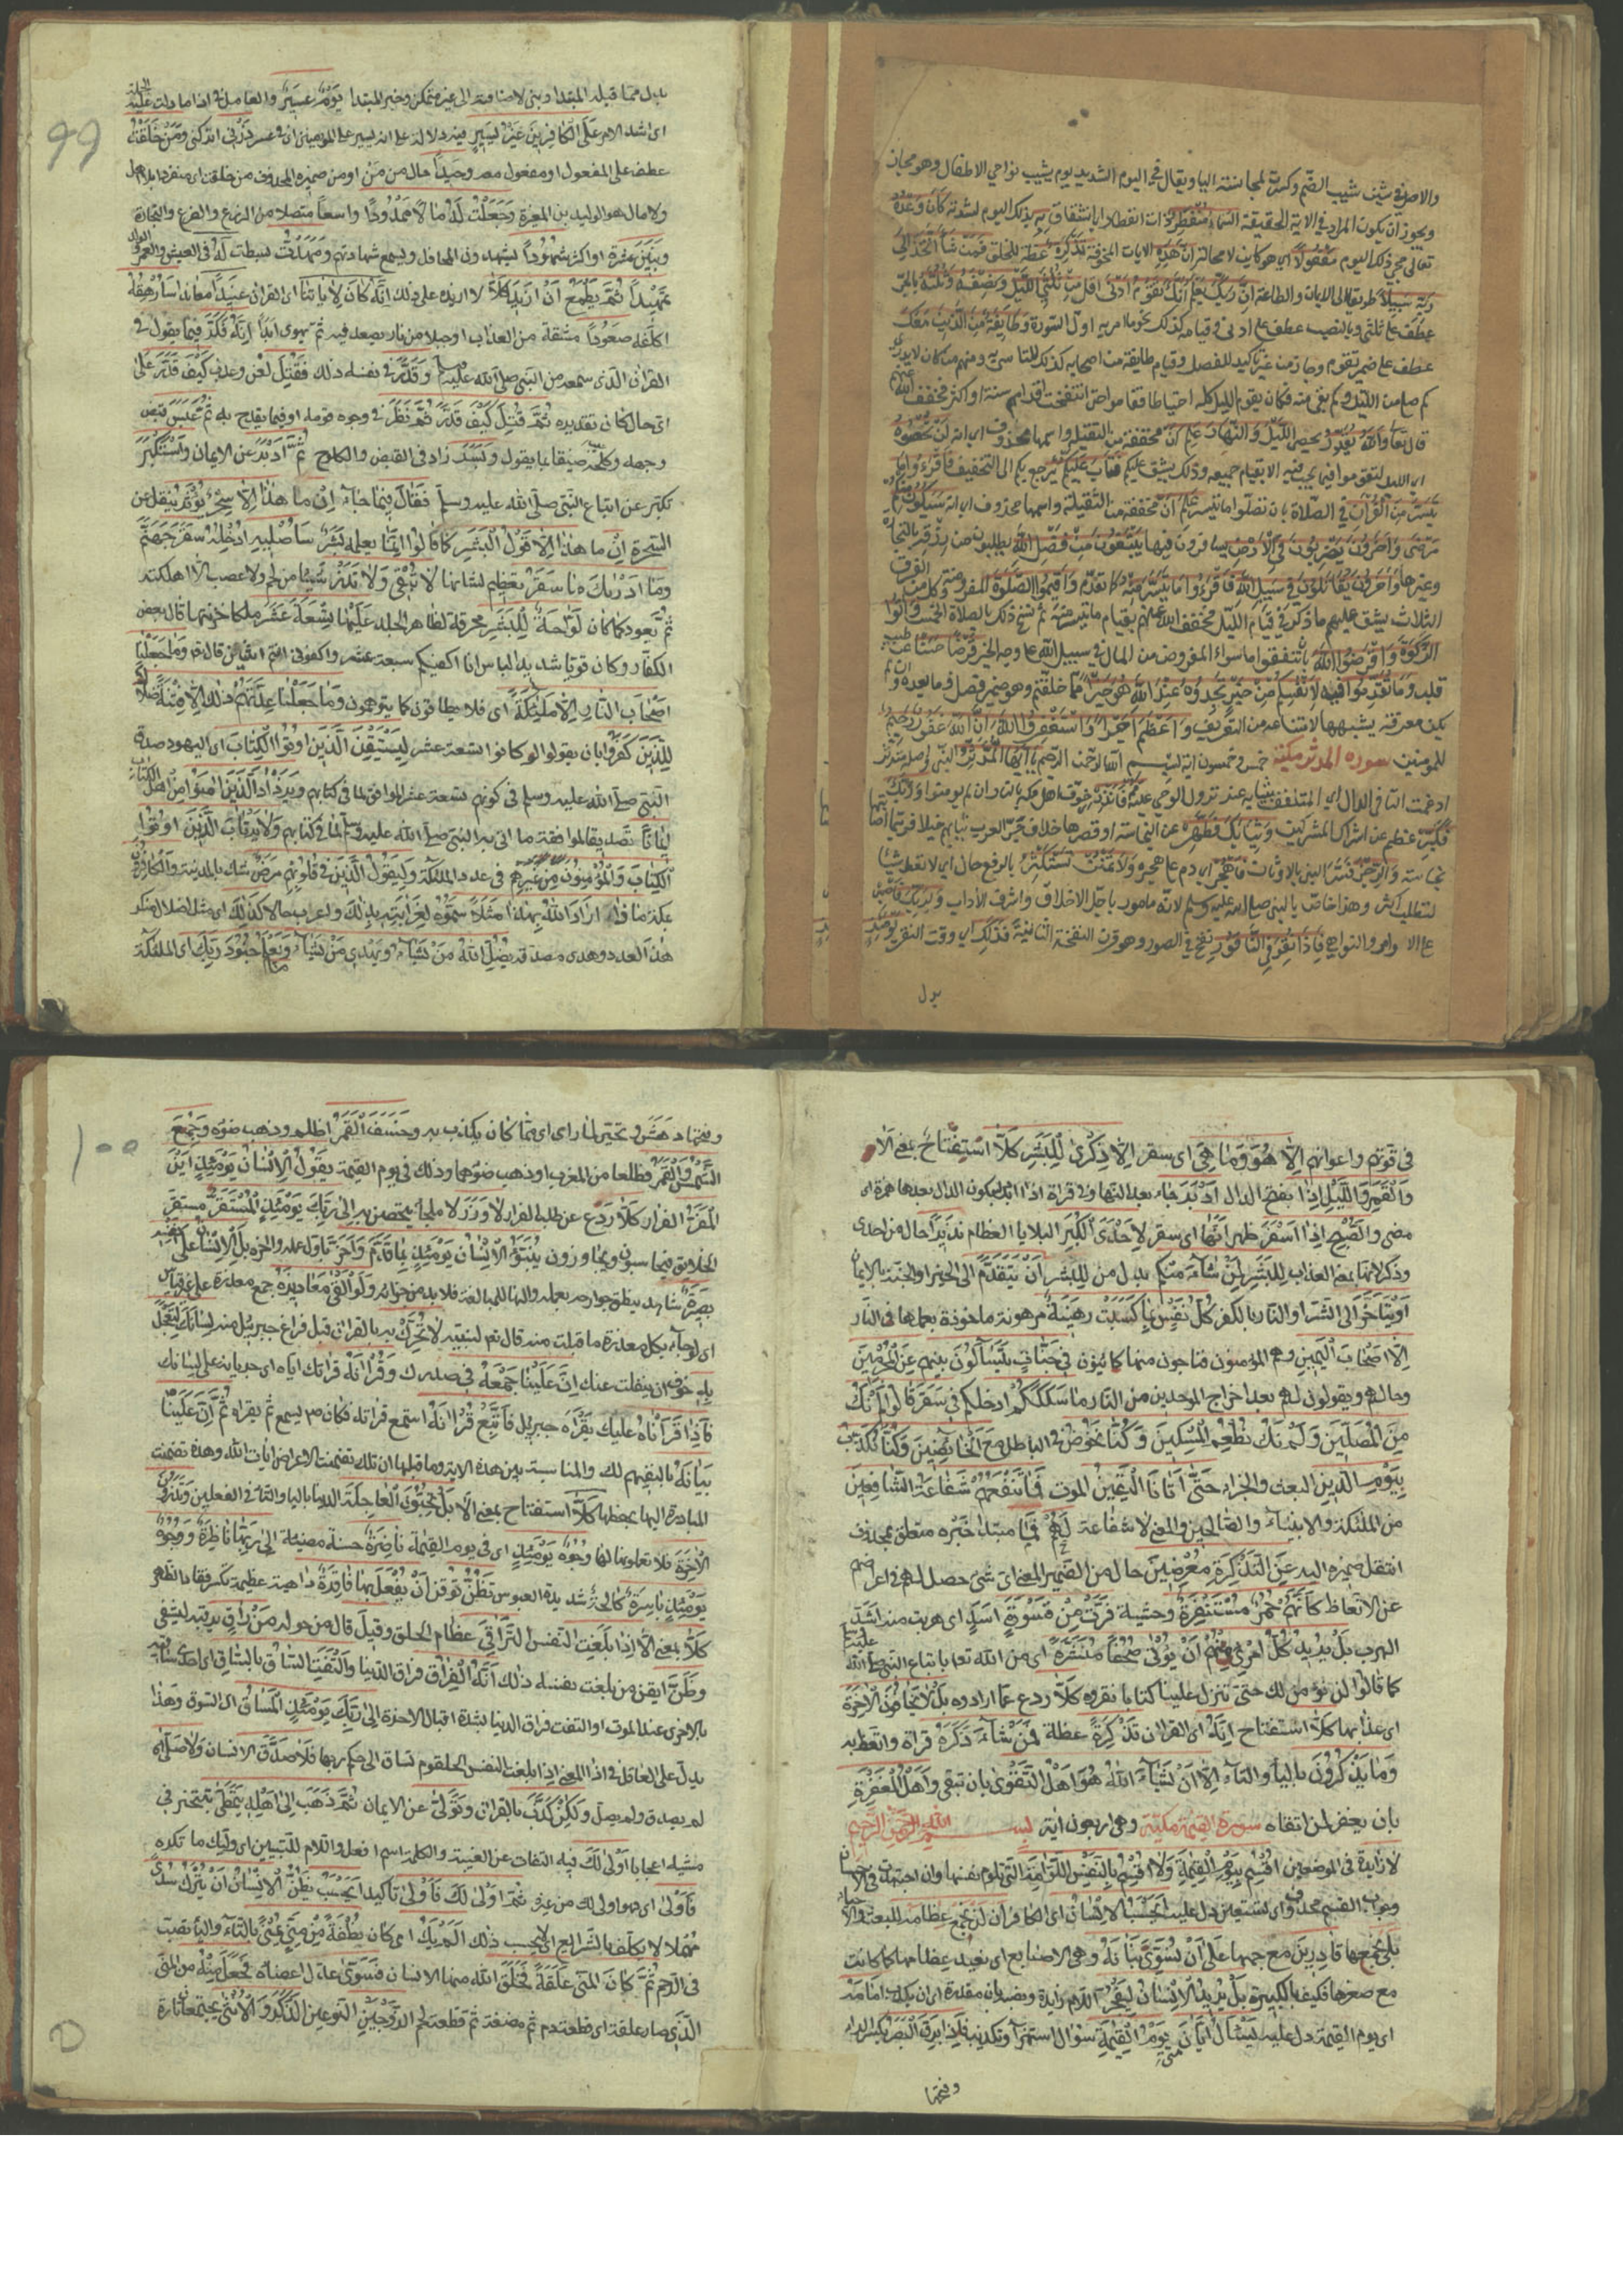 والاصل في شين شيب الضم وكسرت لمجانسته اليا ويقال في اليوم الشديد يوم يشيب نواصي الاطفال وهو مجاز
ويجوز ان يكون المراد في الاية الحقيقة السَّمَاءُ مُنْفَطِرٌ ذات انفطار اي انشقاق بِهِ بذلك اليوم لشدته كَانَ وَعْدُهُ
تعالى بمجي ذلك اليوم مَفْعُولًا اي هو كاين لا محالة اِنَّ هٰذِهِ الايات المخوفة تَذْكِرَةٌ عظة للخلق فَمَنْ شَآءَ اتَّخَذَ اِلٰى
رَبِّهٖ سَبِيلًا طريقا الى الايمان والطاعة اِنَّ رَبَّكَ يَعْلَمُ اَنَّكَ تَقُومُ اَدْنٰى اقل مِنْ ثُلُثَىِ اللَّيْلِ وَنِصْفِهٖ وَثُلُثِهٖ بالجر
عطف على ثلثي وبالنصب عطف على ادنى وقيامه كذلك نحو ما امر به اول السورة وَطَآئِفَةٌ مِنَ الَّذِينَ مَعَكَ
عطف على ضمير تقوم وجاز من غير تاكيد للفصل وقيام طايفة من اصحابه كذلك للتاسي به ومنهم من كان لا يدري
كم صلى من الليل وكم بقي منه فكان يقوم الليل كله احتياطا فقاموا حتى انتفخت اقدامهم سنة او اكثر فخفف الله عنهم
قال تعا وَاللّٰهُ يُقَدِّرُ يحصي اللَّيْلَ وَالنَّهَارَ عَلِمَ اَنْ مخففة من الثقيلة واسمها محذوف اي انه لَنْ تُحْصُوهُ
اي الليل لتقوموا فيما يجب فيه الا بقيام جميعه وذلك يشق عليكم فَتَابَ عَلَيْكُمْ رجع بكم الى التخفيف فَاقْرَءُوا مَا
تَيَسَّرَ مِنَ الْقُرْآنِ في الصلاة بان تصلوا ما تيسر عَلِمَ اَنْ مخففة من الثقيلة واسمها محذوف اي انه سَيَكُونُ مِنْكُمْ
مَرْضٰى وَآخَرُونَ يَضْرِبُونَ فِي الْاَرْضِ يسافرون فيها يَبْتَغُونَ مِنْ فَضْلِ اللّٰهِ يطلبون من رزقه بالتجارة
وغيرها وَآخَرُونَ يُقَاتِلُونَ فِي سَبِيلِ اللّٰهِ فَاقْرَءُوا مَا تَيَسَّرَ مِنْهُ كما تقدم وَاَقِيمُوا الصَّلٰوةَ المفروضة وكل من الفرق
الثلاث يشق عليهم ما ذكر في قيام الليل فخفف الله عنهم بقيام ما تيسر منه ثم نسخ ذلك بالصلاة الخمس وَآتُوا
الزَّكٰوةَ وَاَقْرِضُوا اللّٰهَ بان تنفقوا ما سواء المفروض من المال في سبيل الله على وجه الخير قَرْضًا حَسَنًا عن طيب
قلب وَمَا تُقَدِّمُوا لِاَنْفُسِكُمْ مِنْ خَيْرٍ تَجِدُوهُ عِنْدَ اللّٰهِ هُوَ خَيْرًا مما خلفتم وهو ضمير فصل وما بعده وان لم
يكن معرفة يشبهها لامتناعه من التعريف وَاَعْظَمَ اَجْرًا وَاسْتَغْفِرُوا اللّٰهَ اِنَّ اللّٰهَ غَفُورٌ رَحِيمٌ
للمومنين سورة المدثر مكية خمس وخمسون اية بسم الله الرحمن الرحيم يَا اَيُّهَا الْمُدَّثِّرُ النبي واصله المتدثر
ادغمت التا في الدال اي المتلفف بثيابه عند نزول الوحي عليه قُمْ فَاَنْذِرْ خوف اهل مكة بالنار ان لم يومنوا وَرَبَّكَ
فَكَبِّرْ عظم عن اشراك المشركين وَثِيَابَكَ فَطَهِّرْ عن النجاسة او قصرها خلاف جر العرب ثيابهم خيلا فربما اصابتها
نجاسة وَالرُّجْزَ فسره النبي بالاوثان فَاهْجُرْ اي دم على هجره وَلَا تَمْنُنْ تَسْتَكْثِرُ بالرفع حال اي لا تعط شيا
لتطلب اكثر وهذا خاص بالنبي صلى الله عليه وسلم لانه مامور باجل الاخلاق واشرف الاداب وَلِرَبِّكَ فَاصْبِرْ
على الاوامر والنواهي فَاِذَا نُقِرَ فِي النَّاقُورِ نفخ في الصور وهو القرن النفخة الثانية فَذٰلِكَ اي وقت النقر يَوْمَئِذٍ
بدل
99
بدل مما قبله المبتدا وبني لاضافته الى غير متمكن وخبر المبتدا يَوْمٌ عَسِيرٌ والعامل في اذا ما دلت عليه الجملة
اي اشتد الامر عَلَى الْكَافِرِينَ غَيْرُ يَسِيرٍ فيه دلالة على انه يسير على المؤمنين اي في عسره ذَرْنِي اتركني وَمَنْ خَلَقْتُ
عطف على المفعول او مفعول معه وَحِيدًا حال من مَنْ او من ضميره المحذوف من خلقت اي منفردا بلا اهل
ولا مال هو الوليد بن المغيرة وَجَعَلْتُ لَهُ مَالًا مَمْدُودًا واسعا متصلا من الزرع والضرع والتجارة
وَبَنِينَ عشرة او اكثر شُهُودًا يشهدون المحافل ويسمع شهادتهم وَمَهَّدْتُ بسطت لَهُ في العيش والعمر والولد
تَمْهِيدًا ثُمَّ يَطْمَعُ اَنْ اَزِيدَ كَلَّا لا ازيده على ذلك اِنَّهُ كَانَ لِآيَاتِنَا اي القران عَنِيدًا معاندا سَاُرْهِقُهُ
اكلفه صَعُودًا مشقة من العذاب او جبلا من نار يصعد فيه ثم يهوى ابدا اِنَّهُ فَكَّرَ فيما يقول في
القران الذى سمعه من النبي صلى الله عليه وسلم وَقَدَّرَ في نفسه ذلك فَقُتِلَ لعن وعذب كَيْفَ قَدَّرَ على
اي حال كان تقديره ثُمَّ قُتِلَ كَيْفَ قَدَّرَ ثُمَّ نَظَرَ في وجوه قومه او فيما يقدح به ثُمَّ عَبَسَ قبض
وجهه وكلحه ضيقا بما يقول وَبَسَرَ زاد في القبض والكلوح ثُمَّ اَدْبَرَ عن الايمان وَاسْتَكْبَرَ
تكبر عن اتباع النبي صلى الله عليه وسلم فَقَالَ فيما جاء به اِنْ ما هٰذَا اِلَّا سِحْرٌ يُؤْثَرُ ينقل عن
السحرة اِنْ ما هٰذَا اِلَّا قَوْلُ الْبَشَرِ كما قالوا انما يعلمه بشر سَاُصْلِيهِ ادخله سَقَرَ جهنم
وَمَا اَدْرٰىكَ مَا سَقَرُ تعظيم لشانها لَا تُبْقِى وَلَا تَذَرُ شيئا من لحم ولا عصب الا اهلكته
ثم يعود كما كان لَوَّاحَةٌ لِلْبَشَرِ محرقة لظاهر الجلد عَلَيْهَا تِسْعَةَ عَشَرَ ملكا خزنتها قال بعض
الكفار وكان قويا شديد الباس انا اكفيكم سبعة عشر واكفوني انتم اثنين قال تعا وَمَا جَعَلْنَا
اَصْحَابَ النَّارِ اِلَّا مَلٰئِكَةً اى فلا يطاقون كما يتوهمون وَمَا جَعَلْنَا عِدَّتَهُمْ ذلك اِلَّا فِتْنَةً ضلالا
لِلَّذِينَ كَفَرُوا بان يقولوا لم كانوا تسعة عشر لِيَسْتَيْقِنَ الَّذِينَ اُوتُوا الْكِتَابَ اى اليهود صدق
النبي صلى الله عليه وسلم في كونهم تسعة عشر الموافق لما في كتابهم وَيَزْدَادَ الَّذِينَ اٰمَنُوا من اهل الكتاب
اِيمَانًا تصديقا لموافقة ما اتى به النبي صلى الله عليه وسلم لما في كتابهم وَلَا يَرْتَابَ الَّذِينَ اُوتُوا
الْكِتَابَ وَالْمُؤْمِنُونَ من غيرهم في عدد الملئكة وَلِيَقُولَ الَّذِينَ فِي قُلُوبِهِمْ مَرَضٌ شك بالمدينة وَالْكَافِرُونَ
بمكة مَاذَا اَرَادَ اللّٰهُ بِهٰذَا مَثَلًا سموه لغرابته بذلك واعرب حالا كَذٰلِكَ اى مثل اضلال منكر
هذا العدد وهدى مصدقه يُضِلُّ اللّٰهُ مَنْ يَشَآءُ وَيَهْدِي مَنْ يَشَآءُ وَمَا يَعْلَمُ جُنُودَ رَبِّكَ اى الملئكة
في قوتهم واعوانهم اِلَّا هُوَ وَمَا هِيَ اى سقر اِلَّا ذِكْرٰى لِلْبَشَرِ كَلَّا استفتاح بمعنى الا
وَالْقَمَرِ وَاللَّيْلِ اِذَا بفتح الدال اَدْبَرَ جاء بعد النهار وفي قراة اذ ادبر بسكون الدال بعدها همزة اى
مضى وَالصُّبْحِ اِذَا اَسْفَرَ ظهر اِنَّهَا اى سقر لَاِحْدَى الْكُبَرِ البلايا العظام نَذِيرًا حال من احدى
وذكر لانها بمعنى العذاب لِلْبَشَرِ لِمَنْ شَآءَ مِنْكُمْ بدل من للبشر اَنْ يَتَقَدَّمَ الى الخير او الجنة بالايمان
اَوْ يَتَاَخَّرَ الى الشر او النار بالكفر كُلُّ نَفْسٍ بِمَا كَسَبَتْ رَهِينَةٌ مرهونة ماخوذة بعملها في النار
اِلَّا اَصْحَابَ الْيَمِينِ وهم المؤمنون فناجون منها كائنون فِي جَنَّاتٍ يَتَسَآءَلُونَ بينهم عَنِ الْمُجْرِمِينَ
وحالهم ويقولون لهم بعد اخراج الموحدين من النار مَا سَلَكَكُمْ ادخلكم فِي سَقَرَ قَالُوا لَمْ نَكُ
مِنَ الْمُصَلِّينَ وَلَمْ نَكُ نُطْعِمُ الْمِسْكِينَ وَكُنَّا نَخُوضُ في الباطل مَعَ الْخَآئِضِينَ وَكُنَّا نُكَذِّبُ
بِيَوْمِ الدِّينِ البعث والجزاء حَتّٰى اَتَانَا الْيَقِينُ الموت فَمَا تَنْفَعُهُمْ شَفَاعَةُ الشَّافِعِينَ
من الملئكة والانبياء والصالحين والمعنى لا شفاعة لهم فَمَا مبتدا لَهُمْ خبره متعلق بمحذوف
انتقل ضميره اليه عَنِ التَّذْكِرَةِ مُعْرِضِينَ حال من الضمير المعنى اى شئ حصل لهم في اعراضهم
عن الاتعاظ كَاَنَّهُمْ حُمُرٌ مُسْتَنْفِرَةٌ وحشية فَرَّتْ مِنْ قَسْوَرَةٍ اسد اى هربت منه اشد
الهرب بَلْ يُرِيدُ كُلُّ امْرِئٍ مِنْهُمْ اَنْ يُؤْتٰى صُحُفًا مُنَشَّرَةً اى من الله تعا باتباع النبي صلى الله عليه وسلم
كما قالوا لن نؤمن لك حتى تنزل علينا كتابا نقروه كَلَّا ردع عما ارادوه بَلْ لَا يَخَافُونَ الْاٰخِرَةَ
اى عذابها كَلَّا استفتاح اِنَّهُ اى القران تَذْكِرَةٌ عظة فَمَنْ شَآءَ ذَكَرَهُ قراه واتعظ به
وَمَا يَذْكُرُونَ بالياء والتاء اِلَّا اَنْ يَشَآءَ اللّٰهُ هُوَ اَهْلُ التَّقْوٰى بان يتقى وَاَهْلُ الْمَغْفِرَةِ
بان يغفر لمن اتقاه سورة القيمة مكية وهى اربعون اية بسم الله الرحمن الرحيم
لَا زايدة في الموضعين اُقْسِمُ بِيَوْمِ الْقِيٰمَةِ وَلَا اُقْسِمُ بِالنَّفْسِ اللَّوَّامَةِ التي تلوم نفسها وان اجتهدت في الاحسان
وجواب القسم محذوف اى لتبعثن دل عليه اَيَحْسَبُ الْاِنْسَانُ اى الكافر اَنْ لَنْ نَجْمَعَ عِظَامَهُ للبعث والاحياء
بَلٰى نجمعها قَادِرِينَ مع جمعها عَلٰى اَنْ نُسَوِّيَ بَنَانَهُ وهى الاصابع اى نعيد عظامها كما كانت
مع صغرها فكيف بالكبيرة بَلْ يُرِيدُ الْاِنْسَانُ لِيَفْجُرَ اللام زايدة ونصبه بان مقدرة اى ان يكذب اَمَامَهُ
اى يوم القيمة دل عليه يَسْئَلُ اَيَّانَ متى يَوْمُ الْقِيٰمَةِ سؤال استهزاء وتكذيب فَاِذَا بَرِقَ الْبَصَرُ بكسر الراء
وفتحها
100
وفتحها دهش وتحير لما راى اى مما كان يكذب به وَخَسَفَ الْقَمَرُ اظلم وذهب ضوءه وَجُمِعَ
الشَّمْسُ وَالْقَمَرُ فطلعا من المغرب او ذهب ضوءهما وذلك في يوم القيمة يَقُولُ الْاِنْسَانُ يَوْمَئِذٍ اَيْنَ
الْمَفَرُّ الفرار كَلَّا ردع عن طلب الفرار لَا وَزَرَ لا ملجا يتحصن به اِلٰى رَبِّكَ يَوْمَئِذٍ الْمُسْتَقَرُّ مستقر
الخلايق فيحاسبون ويجازون يُنَبَّؤُ الْاِنْسَانُ يَوْمَئِذٍ بِمَا قَدَّمَ وَاَخَّرَ باول عمله واخره بَلِ الْاِنْسَانُ عَلٰى نَفْسِهٖ
بَصِيرَةٌ شاهد ينطق جوارحه بعمله والهاء للمبالغة فلا بد من جزائه وَلَوْ اَلْقٰى مَعَاذِيرَهُ جمع معذرة على غير قياس
اى لو جاء بكل معذرة ما قبلت منه قال تعا لنبيه لَا تُحَرِّكْ بِهٖ بالقران قبل فراغ جبريل منه لِسَانَكَ لِتَعْجَلَ
بِهٖ خوف ان ينفلت عنك اِنَّ عَلَيْنَا جَمْعَهُ في صدرك وَقُرْاٰنَهُ قراتك اياه اى جريانه على لسانك
فَاِذَا قَرَاْنَاهُ عليك بقراءة جبريل فَاتَّبِعْ قُرْاٰنَهُ استمع قراته فكان ص يسمع ثم يقراه ثُمَّ اِنَّ عَلَيْنَا
بَيَانَهُ بالتفهيم لك والمناسبة بين هذه الاية وما قبلها ان تلك تضمنت الاعراض عن ايات الله وهذه تضمنت
المبادرة اليها بحفظها كَلَّا استفتاح بمعنى الا بَلْ يُحِبُّونَ الْعَاجِلَةَ الدنيا بالياء والتاء في الفعلين وَيَذَرُونَ
الْاٰخِرَةَ فلا تعلمون لها وُجُوهٌ يَوْمَئِذٍ اى في يوم القيمة نَاضِرَةٌ حسنة مضيئة اِلٰى رَبِّهَا نَاظِرَةٌ وَوُجُوهٌ
يَوْمَئِذٍ بَاسِرَةٌ كالحة شديدة العبوس تَظُنُّ توقن اَنْ يُفْعَلَ بِهَا فَاقِرَةٌ داهية عظيمة تكسر فقار الظهر
كَلَّا بمعنى الا اِذَا بَلَغَتِ النفس التَّرَاقِيَ عظام الحلق وَقِيلَ قال من حوله مَنْ رَاقٍ يرقيه ليشفى
وَظَنَّ ايقن من بلغت نفسه ذلك اَنَّهُ الْفِرَاقُ فراق الدنيا وَالْتَفَّتِ السَّاقُ بِالسَّاقِ اى احدى ساقيه
بالاخرى عند الموت او التفت فراق الدنيا بشدة اقبال الاخرة اِلٰى رَبِّكَ يَوْمَئِذٍ الْمَسَاقُ اى السوق وهذا
يدل على العامل في اذا المعنى اذا بلغت النفس الحلقوم تساق الى حكم ربها فَلَا صَدَّقَ الانسان وَلَا صَلّٰى اى
لم يصدق ولم يصل وَلٰكِنْ كَذَّبَ بالقران وَتَوَلّٰى عن الايمان ثُمَّ ذَهَبَ اِلٰى اَهْلِهٖ يَتَمَطّٰى يتبختر في
مشيه اعجابا اَوْلٰى لَكَ فيه التفات عن الغيبة والكلمة اسم فعل واللام للتبيين اى وليك ما تكره
فَاَوْلٰى اى فهو اولى لك من غيره ثُمَّ اَوْلٰى لَكَ فَاَوْلٰى تاكيد اَيَحْسَبُ يظن الْاِنْسَانُ اَنْ يُتْرَكَ سُدًى
مهملا لا يكلف بالشرايع اى لا يحسب ذلك اَلَمْ يَكُ اى كان نُطْفَةً مِنْ مَنِيٍّ يُمْنٰى بالتاء والياء تصب
في الرحم ثُمَّ كَانَ المنى عَلَقَةً فَخَلَقَ الله منها الانسان فَسَوّٰى عدل اعضاءه فَجَعَلَ مِنْهُ من المنى
الذى صار علقة اى قطعة دم ثم مضغة ثم قطعة لحم الزَّوْجَيْنِ النوعين الذَّكَرَ وَالْاُنْثٰى يجتمعان تارة